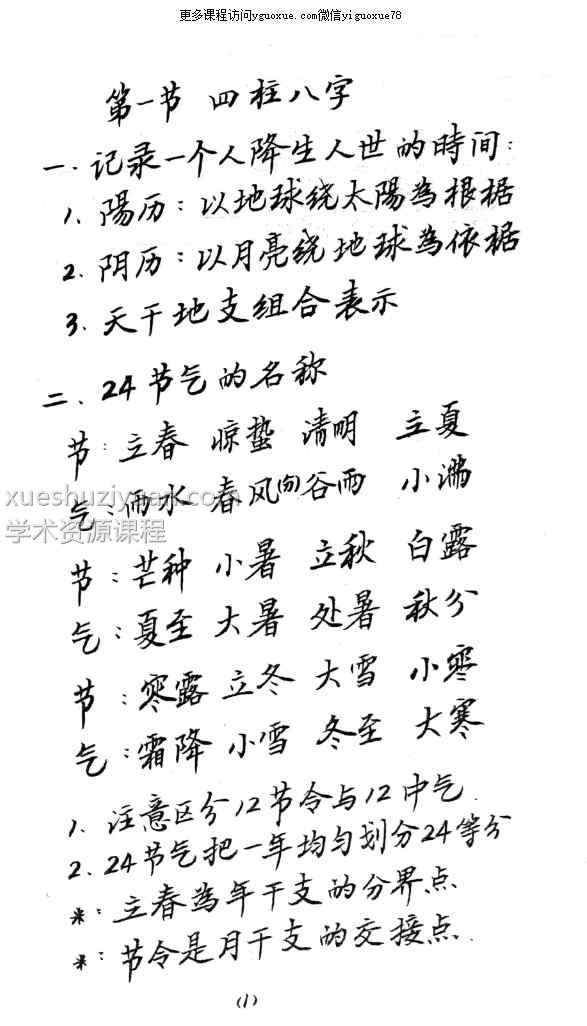 更多课程访问yguoxue.com微信yiguoxue78
第一节 四柱八字
一.记录一个人降生人世的時间:
1.陽历:以地球绕太陽為根据
2.阴历:以月亮绕地球為依据
3.天干地支组合表示
二.24节气的名称
节:立春 惊蛰 清明 立夏
气:雨水 春风(匆)谷雨 小满
xueshuziyuan.com
学术资源课程
节:芒种 小暑 立秋 白露
气:夏至 大暑 处暑 秋分
节:寒露 立冬 大雪 小寒
气:霜降 小雪 冬至 大寒
1.注意区分12节令与12中气.
2.24节气把一年均匀划分24等分
※:立春為年干支的分界点
※:节令是月干支的交接点.
(1)